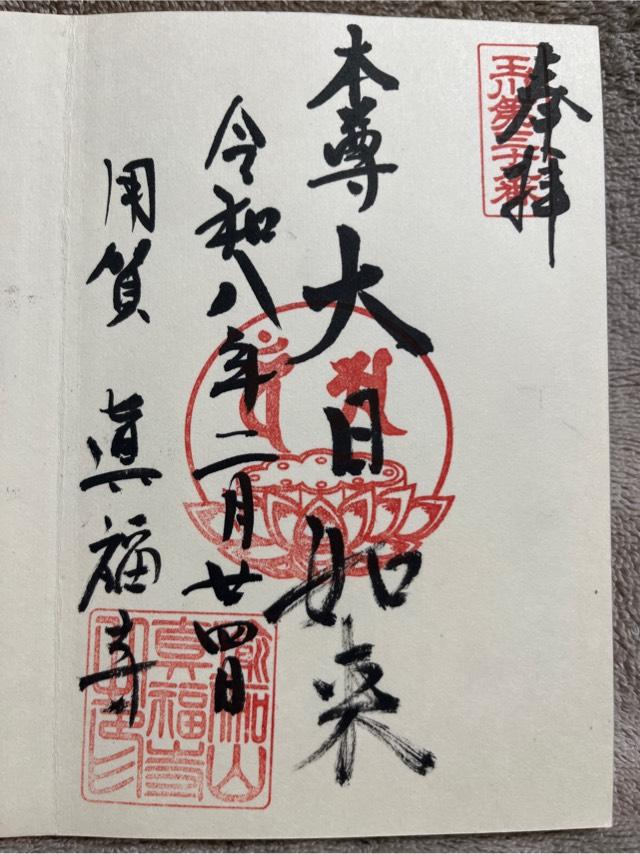 奉拝
本尊 大日如来
令和八年二月廿四日
用賀 眞福寺
瑜伽山
真福寺